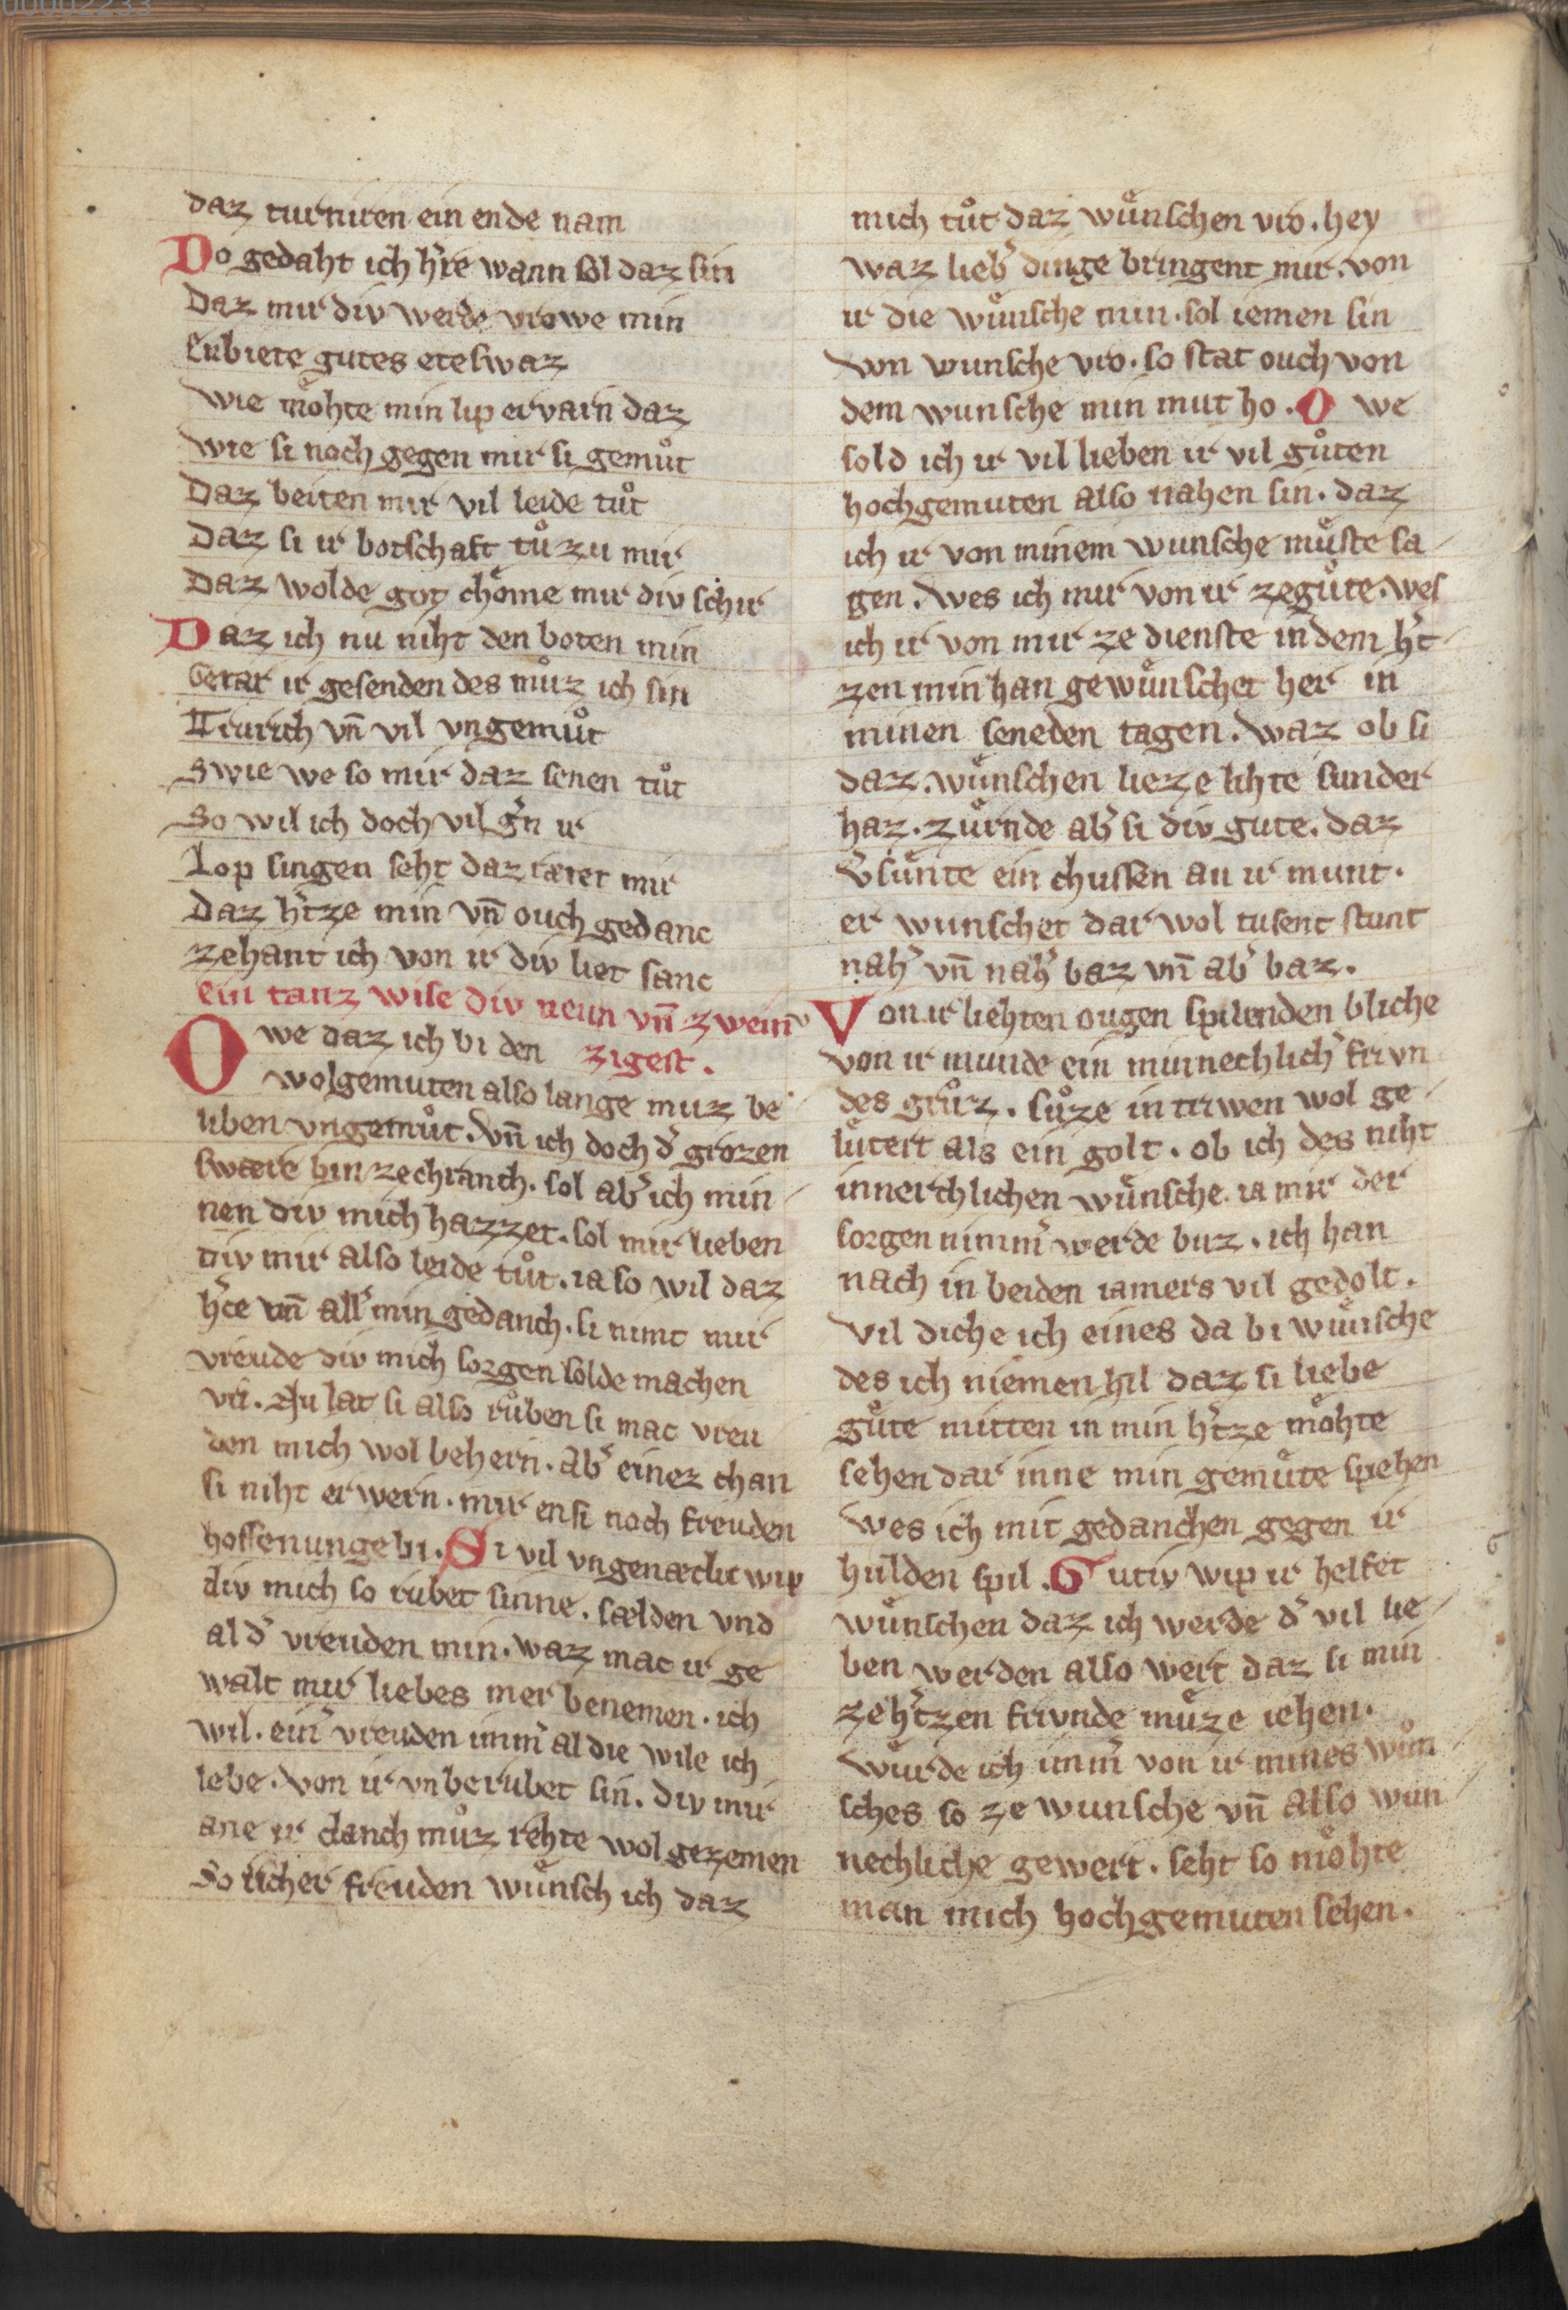 00002233
daz turniren ein ende nam
Do gedaht ich h͛re wann sol daz sin
Daz mir div werde vrowe min
Enbiete gutes eteswaz
wie moͤhte min lip ervarn daz
wie si noch gegen mir si gemuͦt
Daz beiten mir vil leide tuͦt
Daz si ir botschaft tuͦ zu mir
Daz wolde got choͤme mir div schir
Daz ich nu niht den boten min
Getar ir gesenden des muͦz ich sin
Trurich vn̄ vil vngemuͦt
Swie we so mir daz senen tuͦt
So wil ich doch vil g͛n ir
Lop singen seht daz rætet mir
Daz h͛tze min vn̄ ouch gedanc
zehant ich von ir div liet sanc
ein tanz wise div neun vn̄ zwein
Owe daz ich bi den zigest.
wolgemuten also lange muz be
liben vngemuͦt. vn̄ ich doch d͛ grozen
swære bin ze chranch. sol ab͛ ich min
nen div mich hazzet. sol mir lieben
div mir also leide tuͦt. ia so wil daz
h͛ce vn̄ all͛ min gedanch. si nimt mir
vreude div mich sorgen solde machen
vri. Nu lat si also ruͦben si mac vreu
den mich wol behern. ab͛ einez chan
si niht erwern. mir ensi noch freuden
hoffenunge bi. Si vil vngenætlic wip
div mich so rubet sinne. sælden vnd
al d͛ vreuden min. waz mac ir ge
walt mir liebes mer benemen. ich
wil. ein͛ vreuden imm͛ al die wile ich
lebe. von ir vnberubet sin. div mir
ane ir danch muͦz rehte wol gezemen
So richer freuden wuͤnsch ich daz
mich tuͦt daz wuͤnschen vro. hey
waz lieb͛ dinge bringent mir. von
ir die wuͤnsche min. sol iemen sin
von wunsche vro. so stat ouch von
dem wunsche min mut ho. O we
sold ich ir vil lieben ir vil guͦten
hochgemuten also nahen sin. daz
ich ir von minem wunsche muͤste sa
gen. wes ich mir von ir ze guͦte. wes
ich ir von mir ze dienste in dem h͛t
zen min han gewuͤnschet her in
minen seneden tagen. waz ob si
daz. wuͤnschen lieze lihte sunder
haz. zuͤrnde ab͛ si div gute. daz
v͛suͤnte ein chussen an ir munt.
er wunschet dar wol tusent stunt
nah͛ vn̄ nah͛ baz vn̄ ab͛ baz.
Von ir liehten ougen spilenden bliche
von ir munde ein minnechlich͛ frivn
des gruͦz. suͦze in triwen wol ge
luͤtert als ein golt. ob ich des niht
innerchlichen wuͤnsche. ia mir der
sorgen nimm͛ werde buz. ich han
nach in beiden iamers vil gedolt.
Vil diche ich eines da bi wuͤnsche
des ich niemen hil daz si liebe
guͦte mitten in min h͛tze moͤhte
sehen dar inne min gemuͤte spehen
wes ich mit gedanchen gegen ir
hulden spil. Gutiv wip ir helfet
wuͤnschen daz ich werde d͛ vil lie
ben werden also wert daz si min
ze h͛tzen frivnde muͤze iehen.
wuͤrde ich imm͛ von ir mines wuͤn
sches so ze wunsche vn̄ also wun
nechliche gewert. seht so moͤhte
man mich hochgemuten sehen.